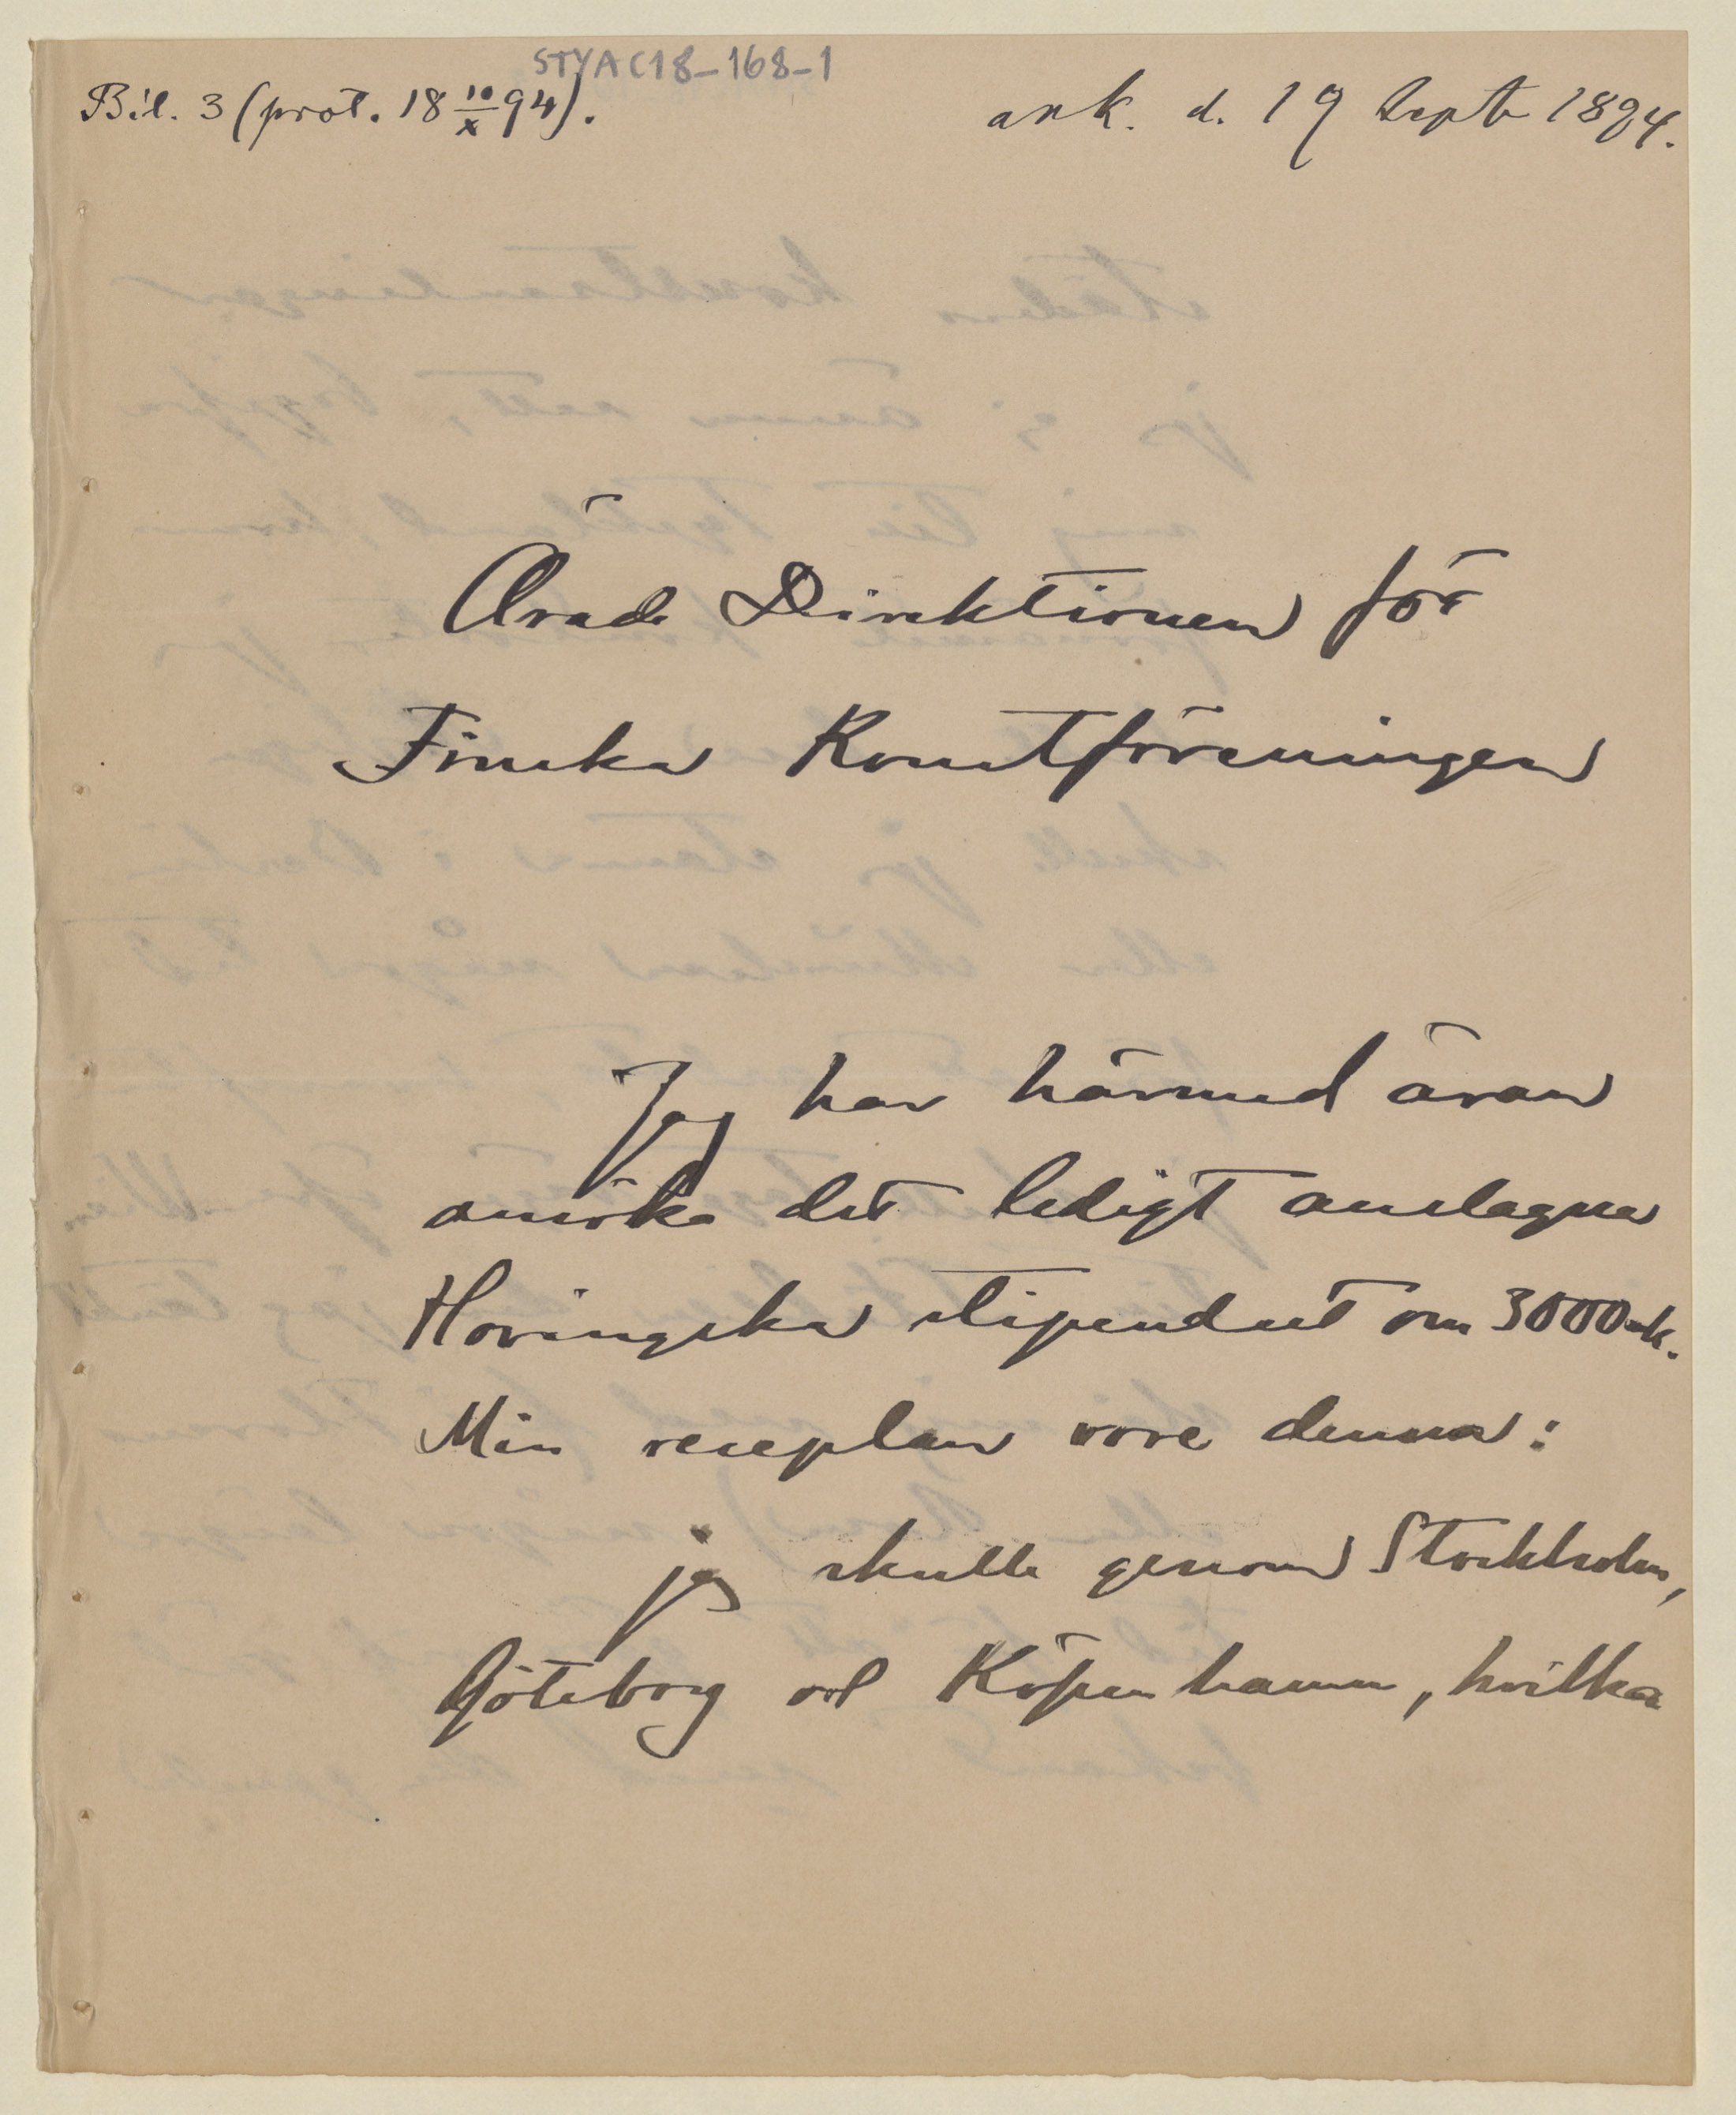 STYA C18-168-1
Bil. 3 (prot. 18 10/X 94).
ank. d. 19 Sept 1894.
Ärade Direktionen för
Finska Konstföreningen
Jag har härmed äran
ansöka det ledigt anslagna
Hovingska stipendiet om 3000 mk.
Min reseplan vore denna:
jag skulle genom Stockholm,
Göteborg och Köpenhamn, hvilka